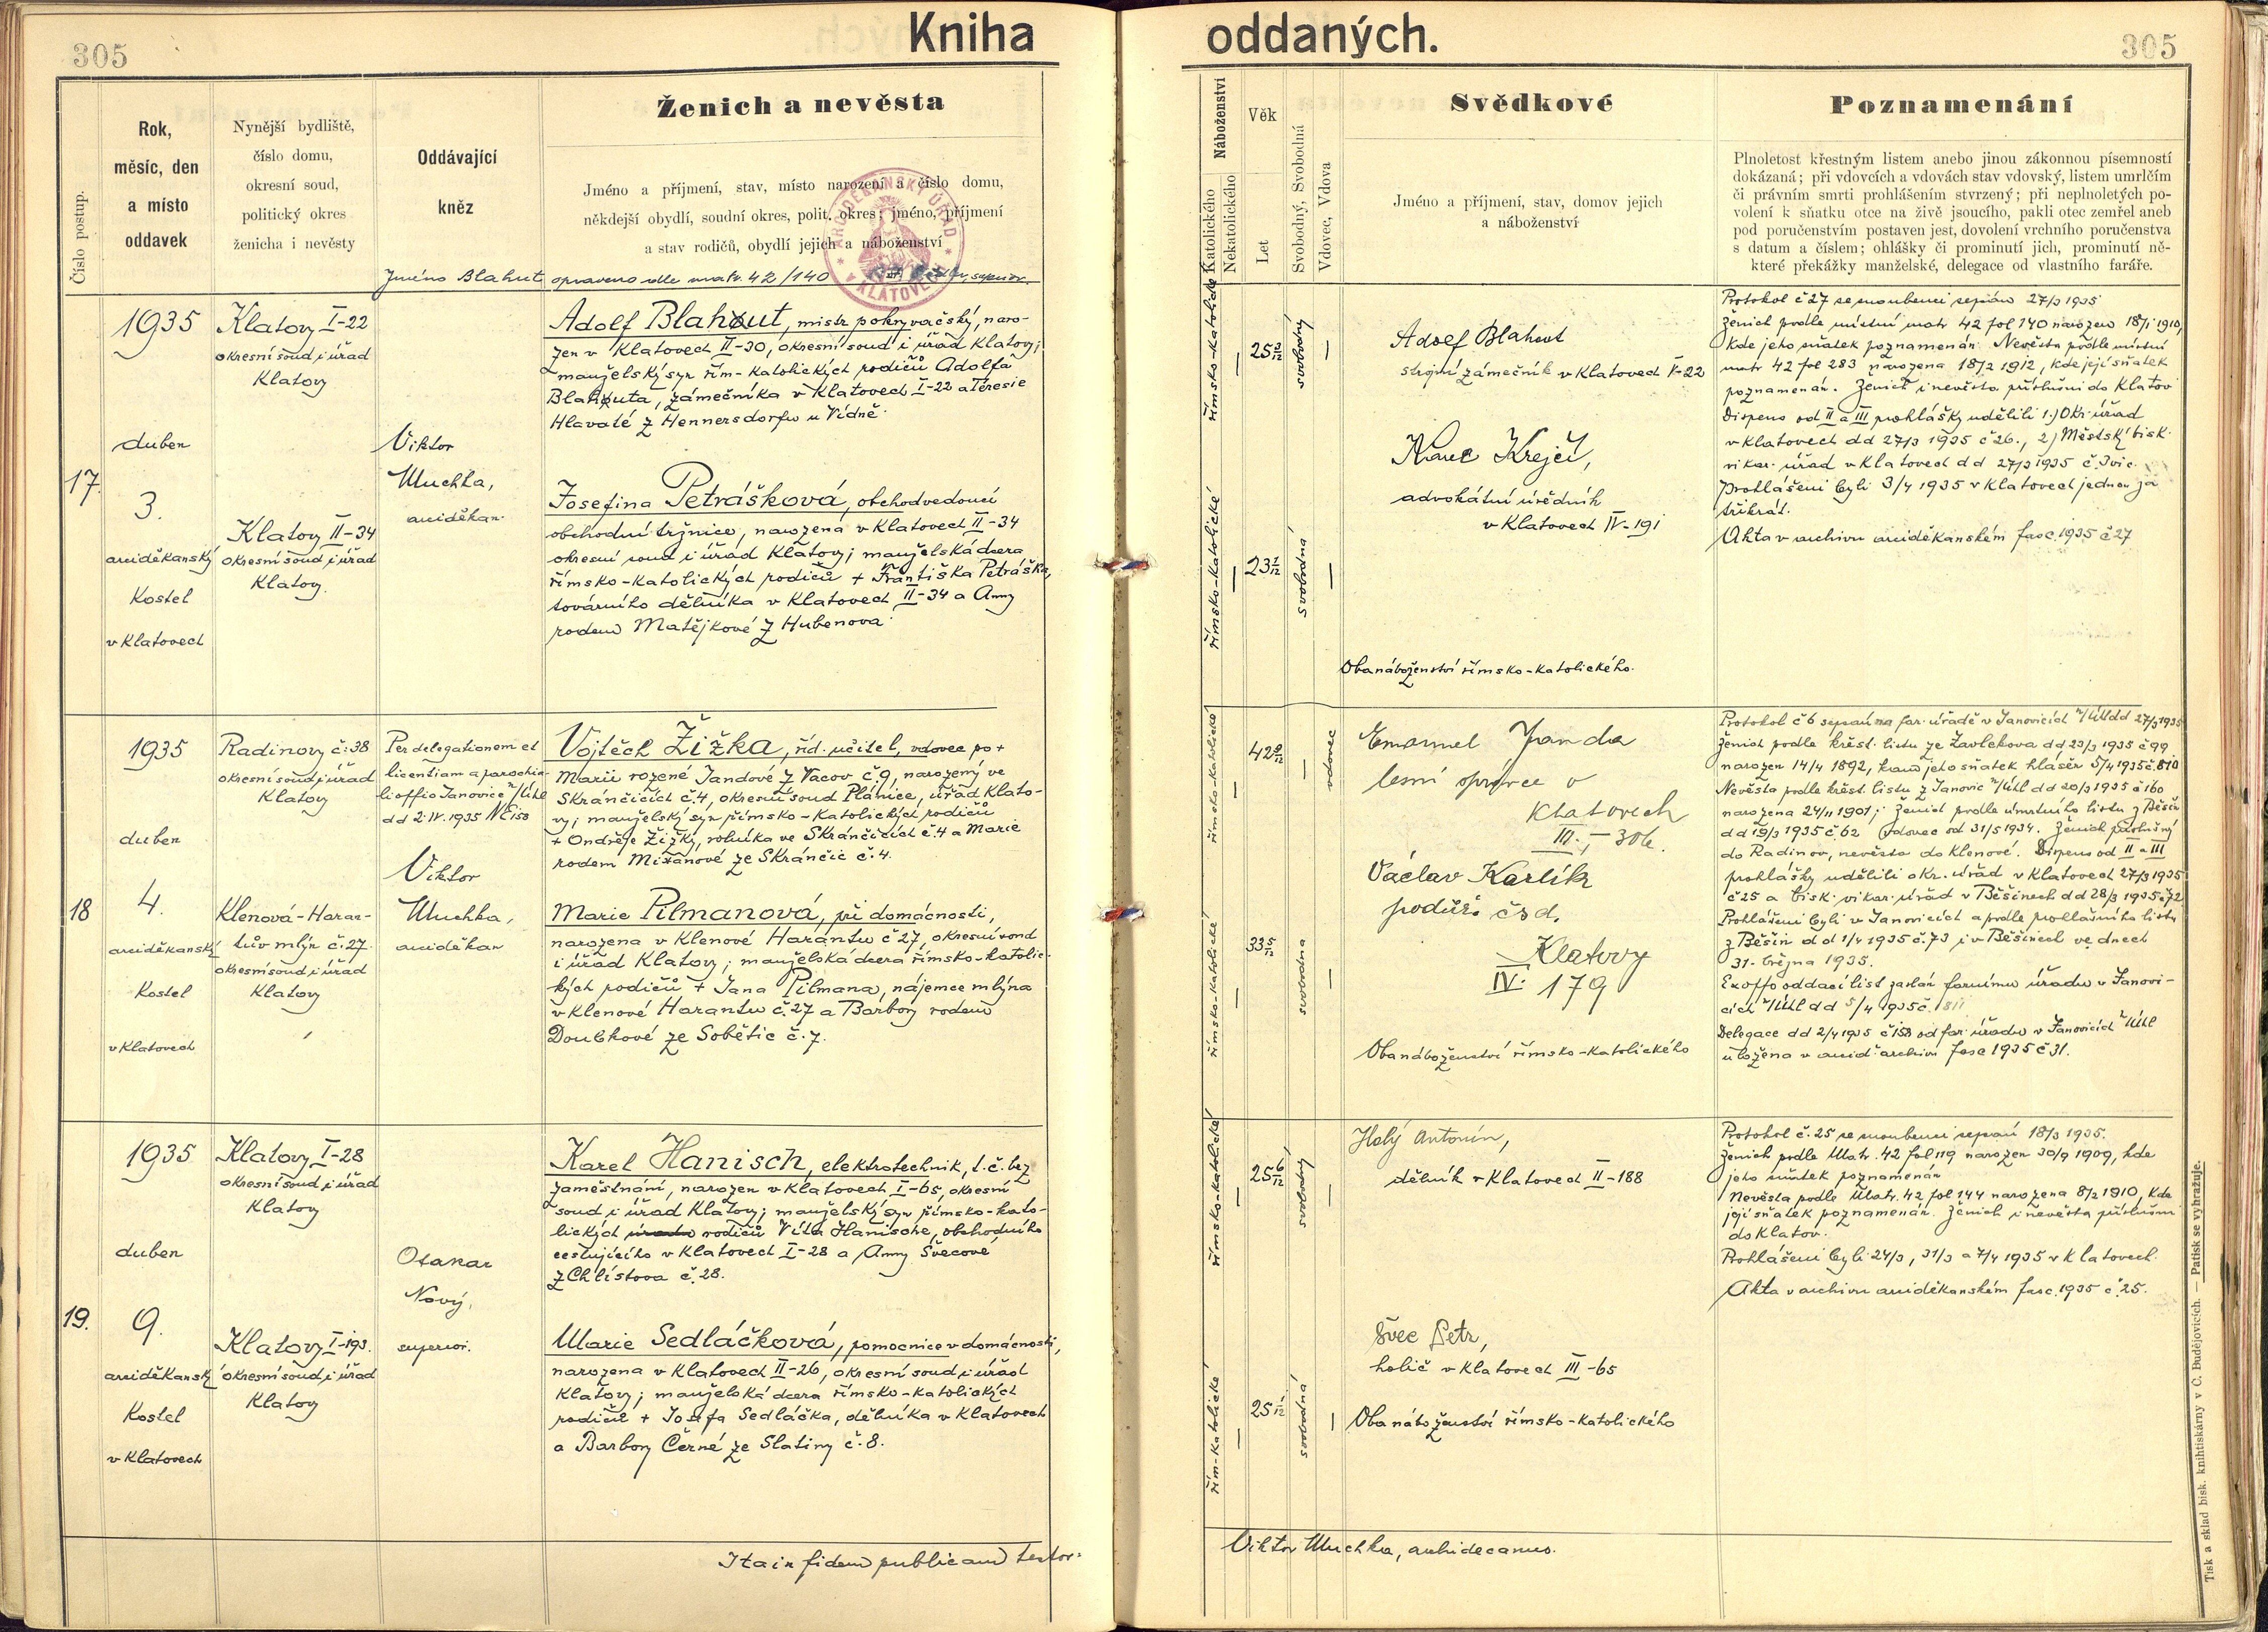 305
Kniha oddaných.
305
Číslo postup.
Rok,
měsíc, den
a místo
oddavek
Nynější bydliště,
číslo domu,
okresní soud,
politický okres
ženicha i nevěsty
Oddávající
kněz
Ženich a nevěsta
Jméno a příjmení, stav, místo narození a číslo domu,
někdejší obydlí, soudní okres, polit. okres; jméno, příjmení
a stav rodičů, obydlí jejich a náboženství
Jméno Blahut opraveno dle matr. 42/140
Náboženství
Katolického
Nekatolického
Věk
Let
Svobodný, Svobodná
Vdovec, Vdova
Svědkové
Jméno a příjmení, stav, domov jejich
a náboženství
Poznamenání
Plnoletost křestným listem anebo jinou zákonnou písemností
dokázaná; při vdovcích a vdovách stav vdovský, listem umrlčím
či právním smrti prohlášením stvrzený; při neplnoletých po-
volení k sňatku otce na živě jsoucího, pakli otec zemřel aneb
pod poručenstvím postaven jest, dovolení vrchního poručenstva
s datum a číslem; ohlášky či prominutí jich, prominutí ně-
které překážky manželské, delegace od vlastního faráře.
17.
1935
duben
3.
arciděkanský
Kostel
v Klatovech
Klatovy I-22
okresní soud i úřad
Klatovy
Klatovy II-34
okresní soud i úřad
Klatovy
Viktor
Muchka,
arciděkan.
Adolf Blahut, mistr pokryvačský, naro-
zen v Klatovech II-30, okresní soud i úřad Klatovy;
manželský syn řím-katolických rodičů Adolfa
Blahuta, zámečníka v Klatovech I-22 a Teresie
Hlavaté z Hennersdorfu u Vídně.
Josefina Petrášková, obchodvedoucí
obchodní tržnice, narozena v Klatovech II-34
okresní soud i úřad Klatovy; manželská dcera
římsko-katolických rodičů + Františka Petráška,
továrního dělníka v Klatovech II-34 a Anny
rodem Matějkové z Hubenova.
římsko-katolické
25
svobodný
římsko-katolické
23
svobodná
Adolf Blahout
strojní zámečník v Klatovech
Krejčí,
advokátní úředník
v Klatovech IV-191
Oba náboženství římsko-katolického.
Protokol č 27 se snoubenci sepsán 27/3 1935
Ženich podle místní matr 42 fol 140 narozen 18/1 1910,
kde jeho sňatek poznamenán. Nevěsta podle místní
matr 42 fol 283 narozena 18/2 1912, kde její sňatek
poznamenán. Ženich i nevěsta příslušni do Klatov
Dispens od II a III prohlášky udělili 1.) Okr. úřad
v Klatovech dd 27/3 1935 č 26., 2) Městský bisk.
vikar. úřad v Klatovech dd 27/3 1935 č.
Prohlášeni byli 3/4 1935 v Klatovech jednou za
třikrát.
Akta v archivu arciděkanském fasc. 1935 č 27
18
1935
duben
4.
arciděkanský
Kostel
v Klatovech
Radinovy č: 38
okresní soud i úřad
Klatovy
Klenová-Haran-
tův mlýn č. 27.
okresní soud i úřad
Klatovy
Per delegationem et
licentiam a parochia-
li offio Janovice n/Úhl
dd 2. IV. 1935 NE 158
Viktor
Muchka,
arciděkan
Vojtěch Žižka, říd. učitel, vdovec po +
Marii rozené Jandové z Vacov č. 9, narozený ve
Skránčicích č. 4, okresní soud Plánice, úřad Klato-
vy; manželský syn římsko-katolických rodičů
+ Ondřeje Žižky, rolníka ve Skránčicích č. 4 a Marie
rodem ze Skránčic č. 4.
Marie Pilmanová, při domácnosti,
narozena v Klenové Harantu č 27, okresní soud
i úřad Klatovy; manželská dcera římsko-katolic-
kých rodičů + Jana Pilmana, nájemce mlýna
v Klenové Harantu č. 27 a Barbory rodem
Doubkové ze Sobětic č. 7.
římsko-katolické
42
vdovec
římsko-katolické
33
svobodná
Emanuel Janda
lesní správce v
Klatovech
III.-306.
Václav Karlík
čsd.
Klatovy
IV. 179
Oba náboženství římsko-katolického
Protokol č 6 sepsán na far. úřadě v Janovicích n/Úhl dd 27/3 1935
Ženich podle křest. listu ze Zavlekova dd 23/3 1935 č 99
narozen 14/4 1892, kam jeho sňatek hlášen 5/4 1935 č. 810
Nevěsta podle křest. listu z Janovic n/Úhl dd 20/3 1935 č 160
narozena 24/11 1901; ženich podle úmrtního listu z Běšin
dd 19/3 1935 č 62 vdovec od 31/5 1934. Ženich příslušný
do Radinov, nevěsta do Klenové. Dispens od II a III
prohlášky udělili okr. úřad v Klatovech 27/3 1935
č 25 a bisk. vikar. úřad v Běšinech dd 28/3 1935 č 72
Prohlášeni byli v Janovicích a podle prohlašního listu
z Běšin dd 1/4 1935 č. 73 i v Běšinech ve dnech
31. března 1935.
Ex offo oddací list zaslán farnímu úřadu v Janovi-
cích n/Úhl dd 5/4 1935 č. 811
Delegace dd 2/4 1935 č 158 od far. úřadu v Janovicích n/Úhl
uložena v arcid. archivu fasc 1935 č 31.
19.
1935
duben
9.
arciděkanský
Kostel
v Klatovech
Klatovy I-28
okresní soud i úřad
Klatovy
Klatovy I-193.
okresní soud i úřad
Klatovy
Otakar
Nový,
superior.
Karel Hanisch, elektrotechnik, t. č. bez
zaměstnání, narozen v Klatovech I-65, okresní
soud i úřad Klatovy; manželský syn římsko-kato-
lických rodičů Víta Hanische, obchodního
cestujícího v Klatovech I-28 a Anny Švecové
z Chlístova č. 28.
Marie Sedláčková, pomocnice v domácnosti,
narozena v Klatovech II-26, okresní soud i úřad
Klatovy; manželská dcera římsko-katolických
rodičů + Josefa Sedláčka, dělníka v Klatovech
a Barbory Černé ze Slatiny č. 8.
římsko-katolické
25 6/12
svobodný
řím-katolické
25 1/12
svobodná
Holý Antonín,
dělník v Klatovech II-188
Švec Petr,
holič v Klatovech III-65
Oba náboženství římsko-katolického
Protokol č. 25 se snoubenci sepsán 18/3 1935.
Ženich podle Matr. 42 fol 119 narozen 30/9 1909, kde
jeho sňatek poznamenán
Nevěsta podle Matr. 42 fol 144 narozena 8/2 1910, kde
její sňatek poznamenán. Ženich i nevěsta příslušni
do Klatov.
Prohlášeni byli 24/3, 31/3 a 7/4 1935 v Klatovech.
Akta v archivu arciděkanském fasc. 1935 č. 25.
Ita in fidem publicam testor:
Viktor Muchka, archidecanus.
Tisk a sklad bisk. knihtiskárny v Č. Budějovicích. — Patisk se vyhražuje.